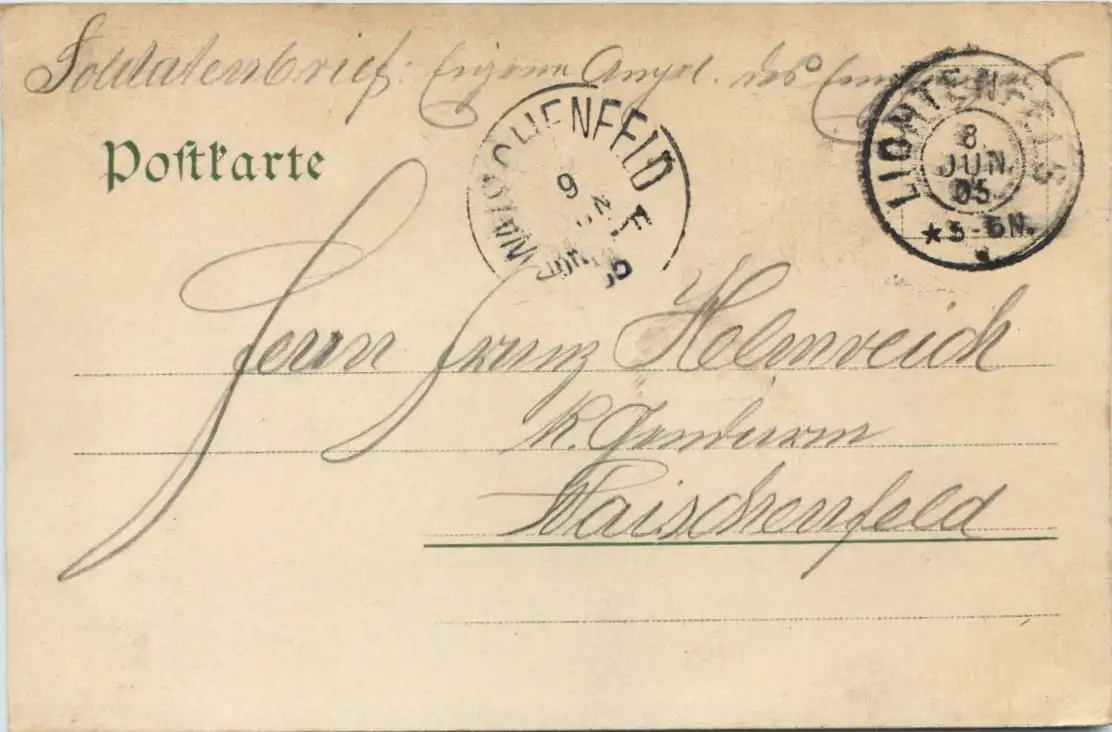 Soldatenbrief: Eigene Angel. des Empfängers
Postkarte
WAISCHENFELD
9 JUN.
LICHTENFELS
8. JUN. 05.
★ 5-6N.
Herrn Franz Helmreich
K. Gendarm
Waischenfeld